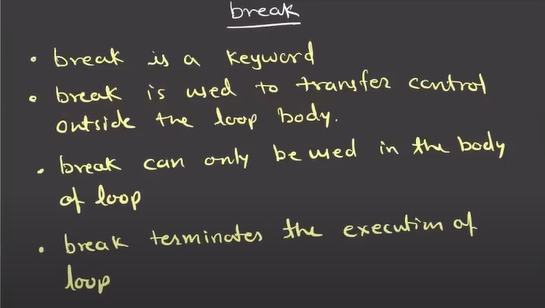 break
• break is a keyword
• break is used to transfer control
outside the loop body.
• break can only be used in the body
of loop
• break terminates the execution of
loop